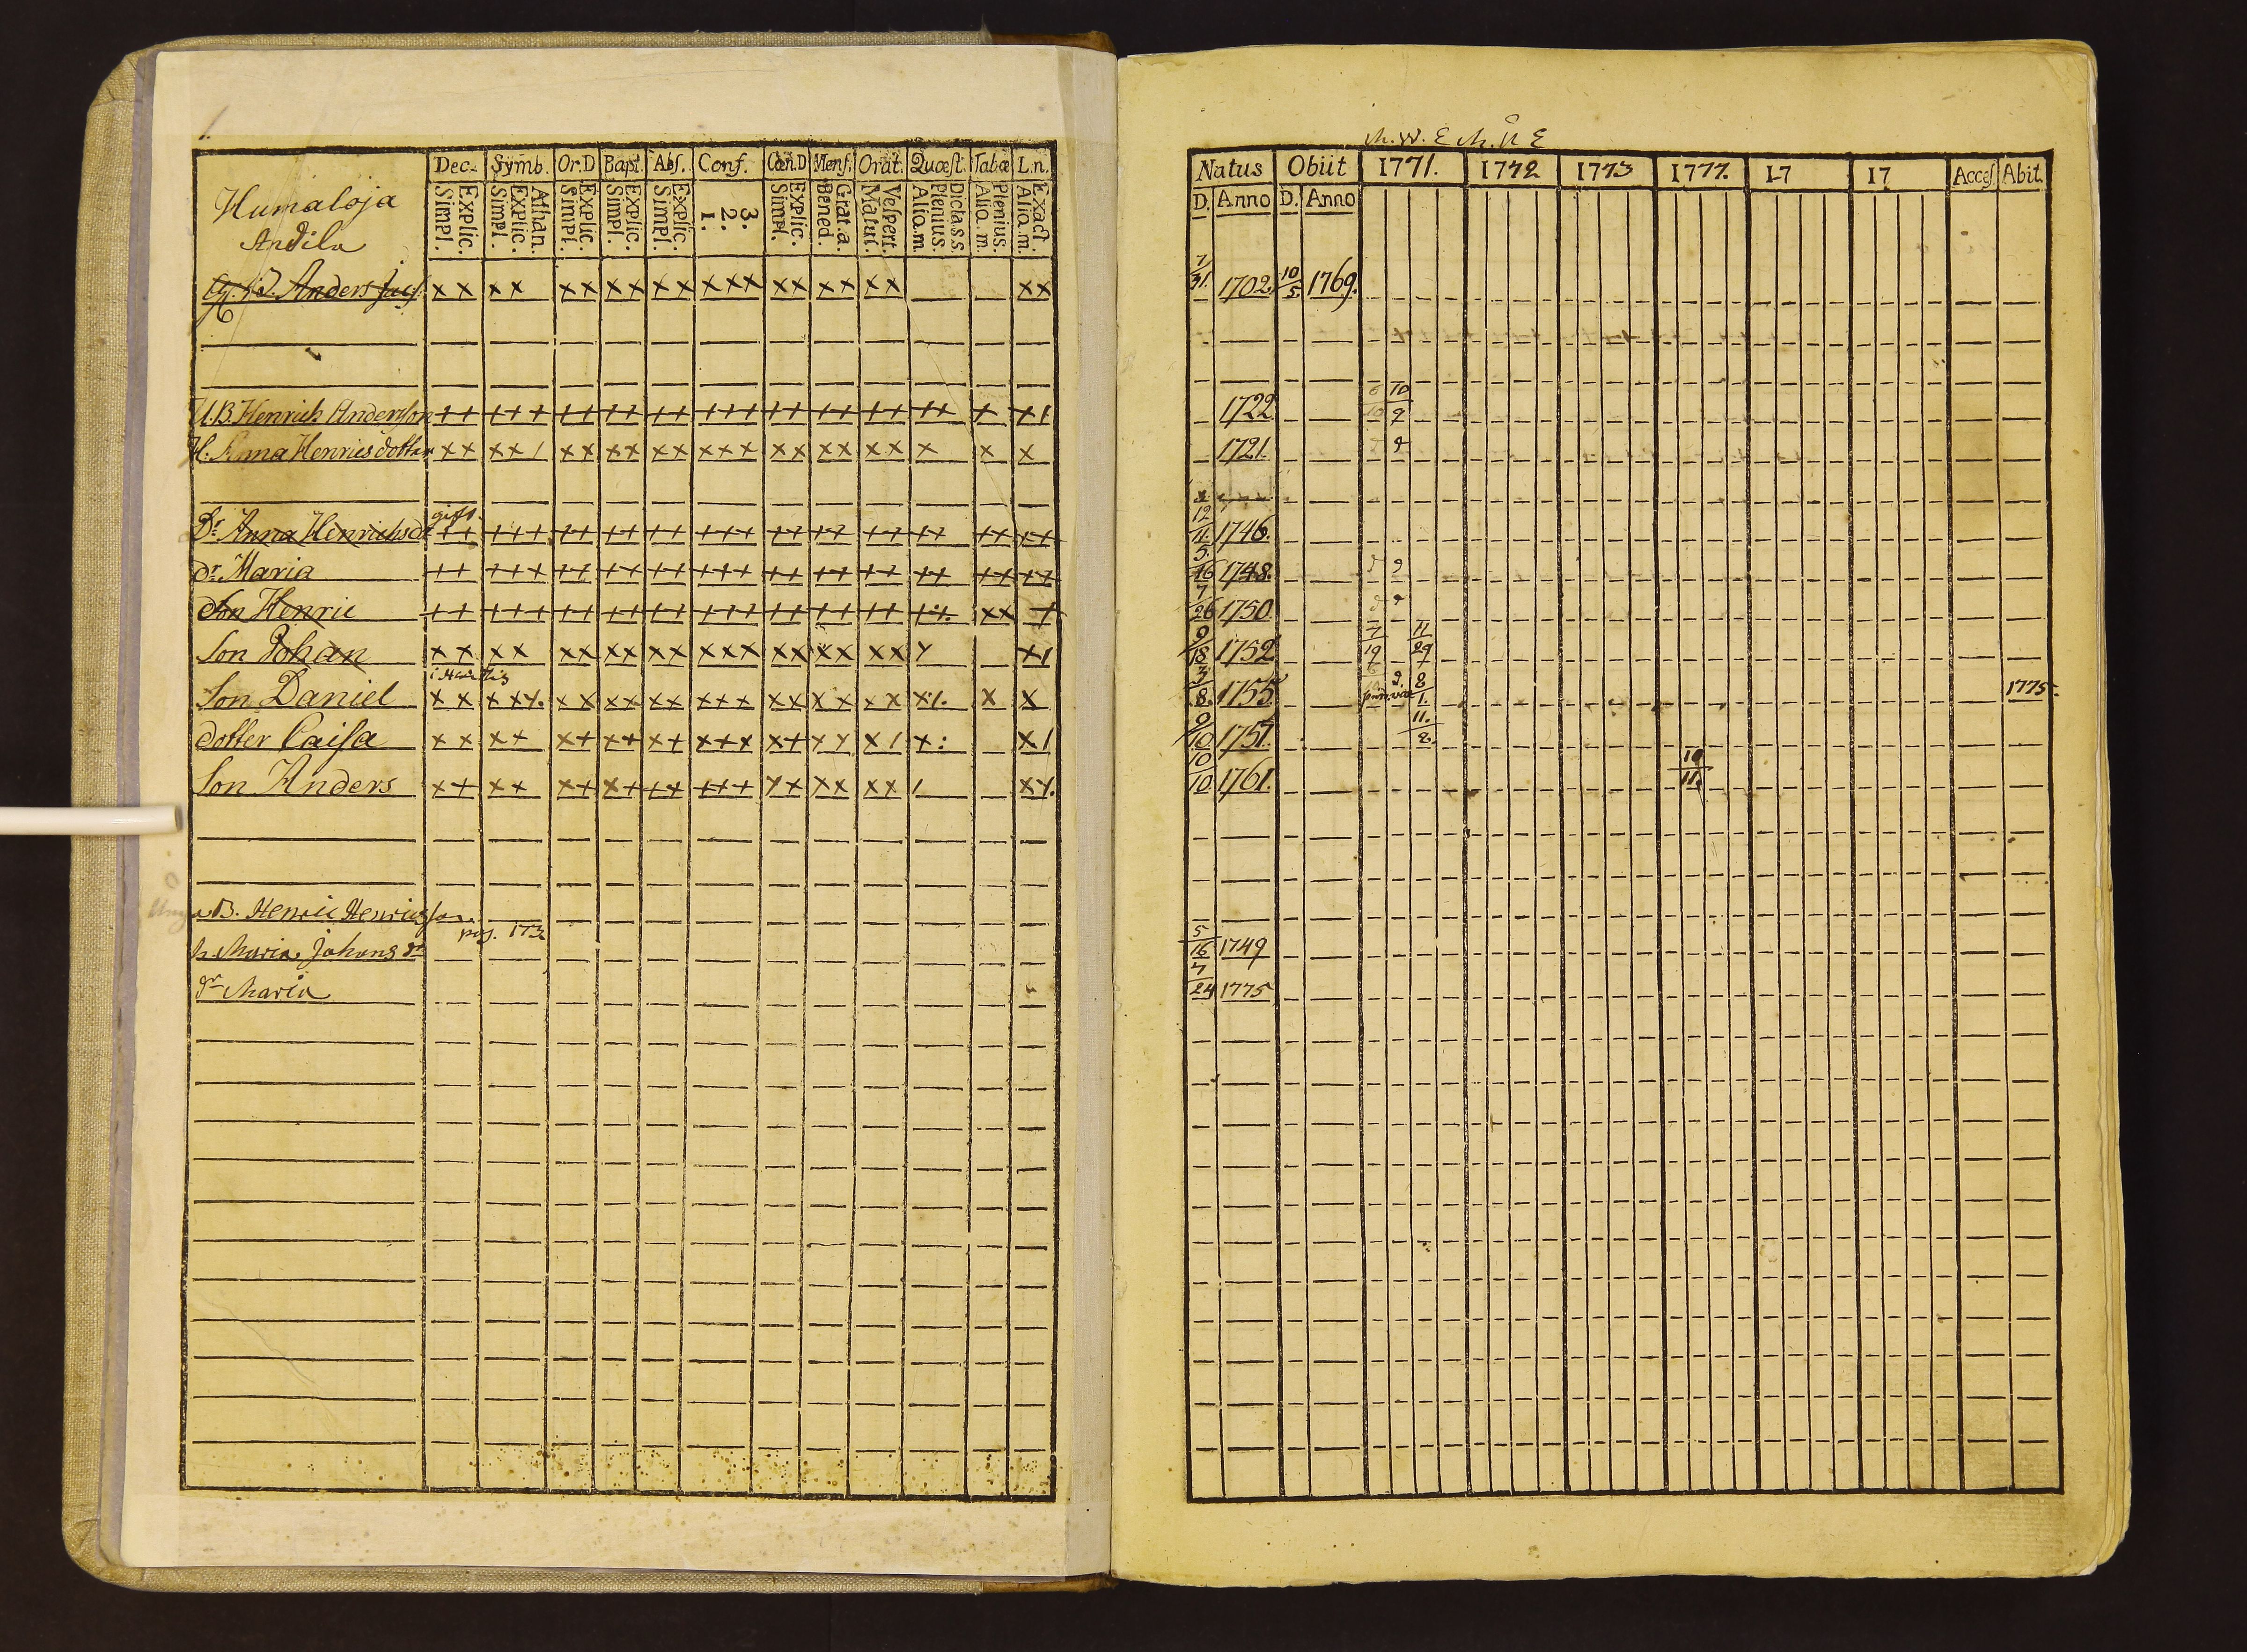 1.
Dec. Symb. Or.D Bapt. Abs. Conf. Cœn.D Mens. Orat. Quæst. Tabæ L.n.
Explic. Simpl. Athan. Explic. Simpl. Explic. Simpl. Explic. Simpl. Explic. Simpl. 3. 2. 1. Explic. Simpl. Grat.a. Bened. Vespert. Matut. Dicta.s.s. Plenius. Aliq.m. Plenius. Aliq.m. Exact. Aliq.m.
Humaloja
Andila
Anders Jacs. x x x x x x x x x x x x x x x x x x x x x
U.B. Henrich Andersson ++ +++ ++ ++ ++ +++ ++ ++ ++ ++ + + 1
H. Anna Henricsdotter x x x x / x x x x x x x x x x x x x x x x x x
gift.
Dr. Anna Henrichsdr ++ +++ ++ ++ ++ +++ ++ ++ ++ ++ ++ ++
dr. Maria ++ +++ ++ ++ ++ +++ ++ ++ ++ ++ ++ ++
Son Henric ++ +++ ++ ++ ++ +++ ++ ++ ++ +. xx +
Son Johan x x x x x x x x x x x x x x x x x x x y x 1
Son Daniel x x x x /. x x x x x x x x x x x x x x x x /. x x
dotter Caisa x x x + x + + + x + x + x x + y y x / x : x /
Son Anders x + x + x + x + + + + + + y + x x x x / x /.
B. Henric Henricsson
pag. 173
h. Maria Johans dr
dr Maria
Natus Obiit 1771. 1772 1773 1777. 17 17 Access Abit.
D. Anno D. Anno
7/31. 1702. 10/5. 1769.
1722 10/9
1721.
12/11. 1746.
5./16 1748.
7/26 1750.
9/18 1752 7/19 11/29
3/8. 1755 8/1. 1775.
9/10 1757. 11./8.
10/10 1761. 10/11.
5/16 1749
7/24 1775